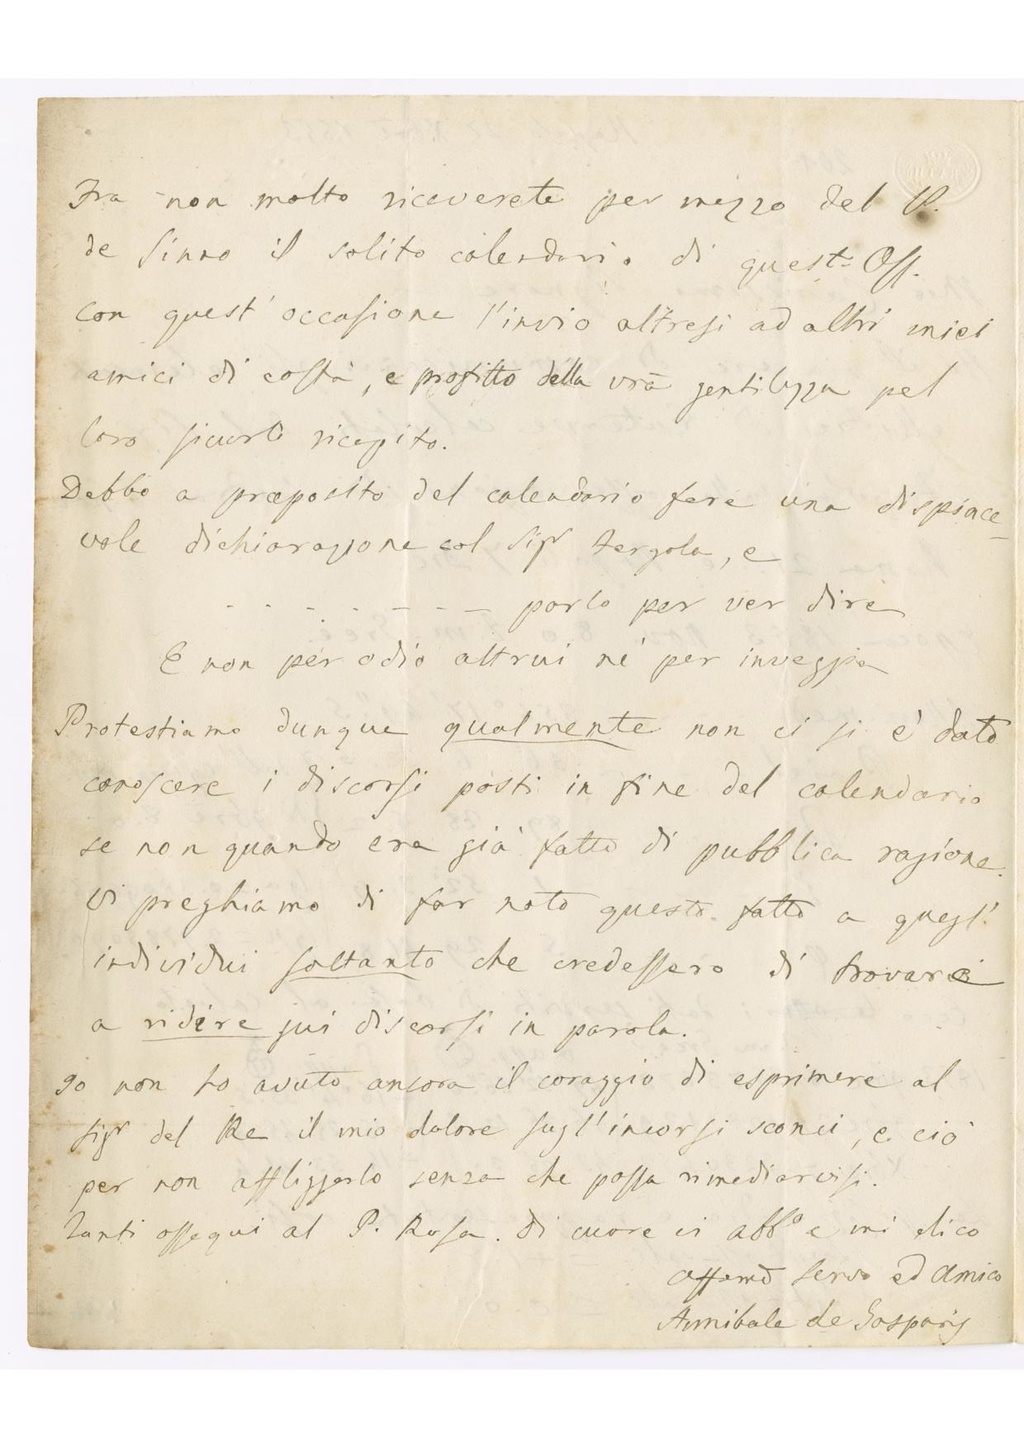 Fra non molto riceverete per mezzo del P.
de Sinno il solito calendario di quest. Oss.
Con quest' occasione l'invio altresì ad altri miei
amici di costà, e profitto della vrā gentilezza pel
loro sicuro ricapito.
Debbo a proposito del calendario fare una dispiace
vole dichiarazione col Sigr Tergola, e
- - - - - - - - parlo per ver dire
E non per odio altrui nè per inveggia
Protestiamo dunque qualmente non ci si è dato
conoscere i discorsi posti in fine del calendario
se non quando era già fatto di pubblica ragione.
Vi preghiamo di far noto questo fatto a quegl'
individui soltanto che credessero di trovarci
a ridere sui discorsi in parola.
Io non ho avuto ancora il coraggio di esprimere al
Sigr del Re il mio dolore sugl'incorsi sconci, e ciò
per non affliggerlo senza che possa rimediarvisi.
Tanti ossequi al P. Rosa. Di cuore vi abbo e mi dico
affmo servo ed amico
Annibale de Gasparis